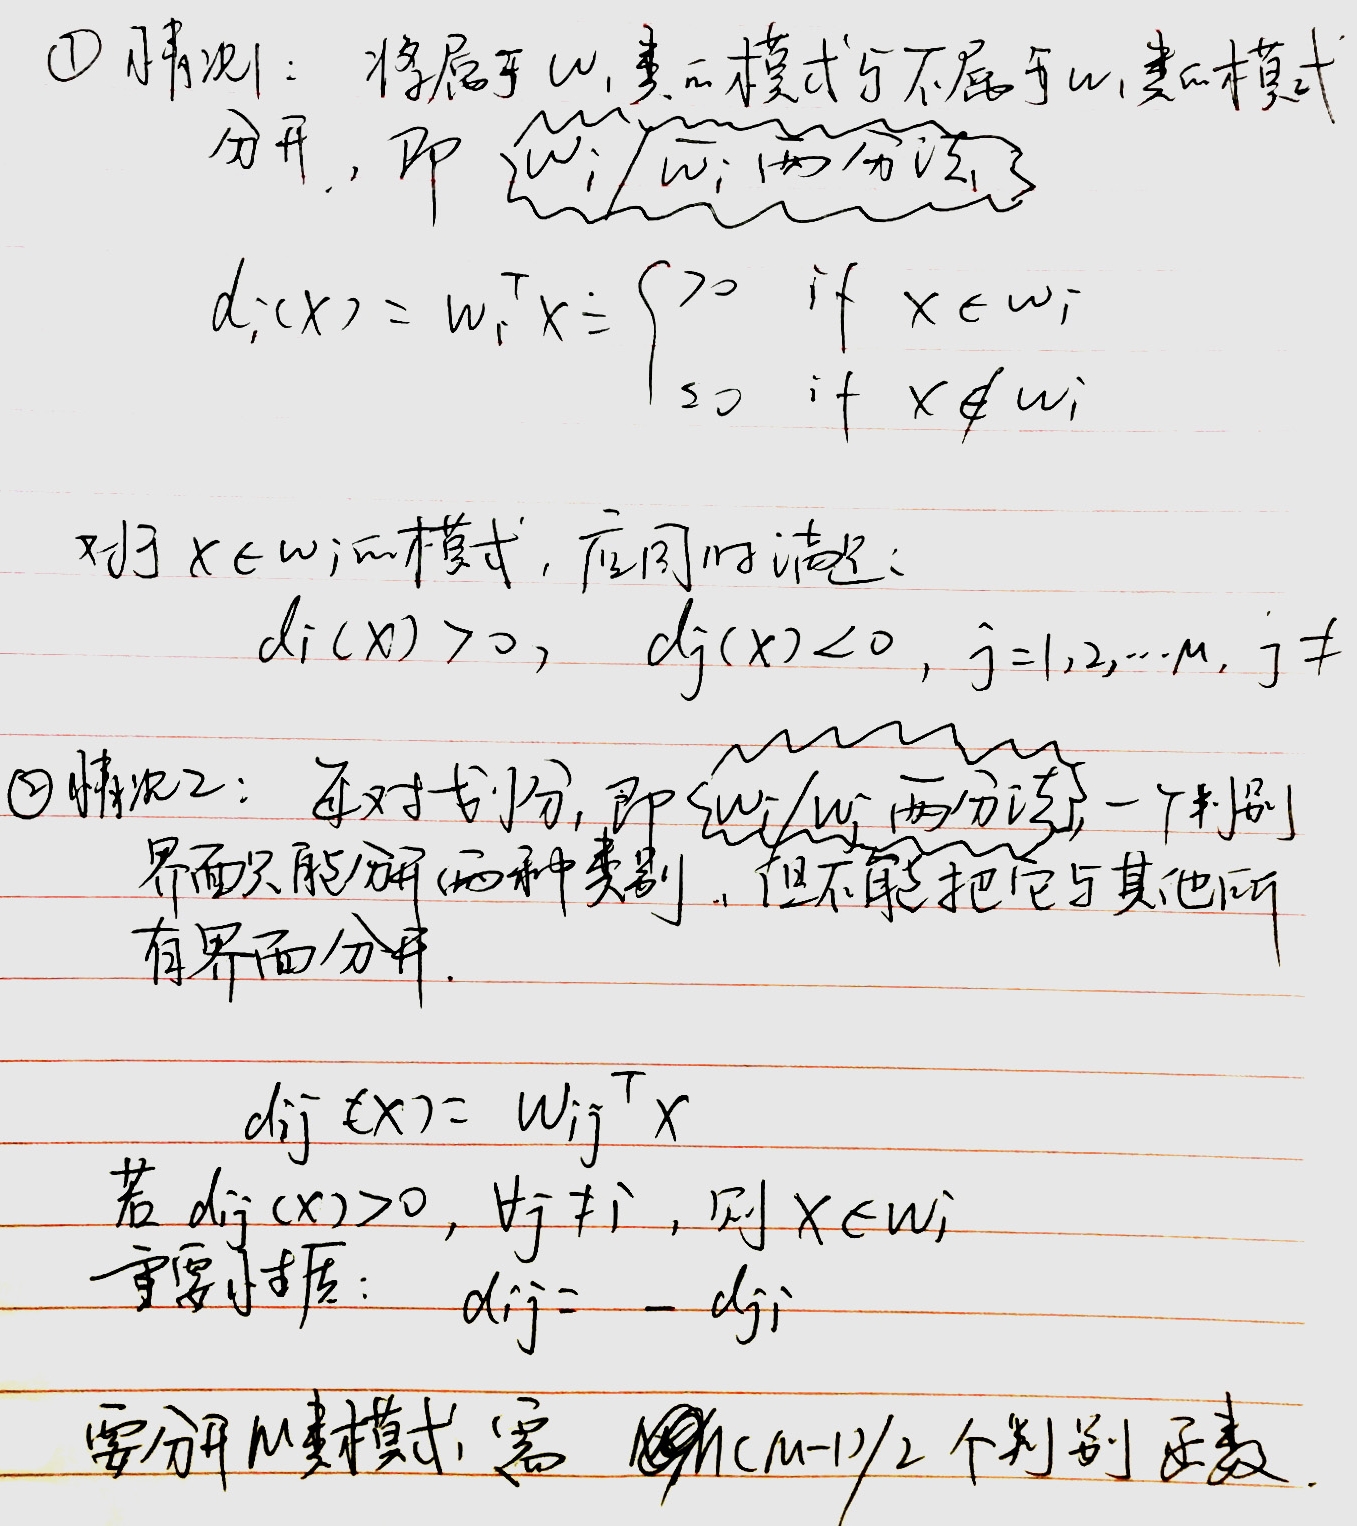 ① 情况1: 将属于ωi类的模式与不属于ωi类的模式
分开, 即 ωi/ω̄i 两分法
di(x) = wiᵀx = { >0 if x∈ωi
≤0 if x∉ωi
对于 x∈ωi的模式, 应同时满足:
di(x)>0, dj(x)<0, j=1,2,…M, j≠
②情况2: 每对划分, 即 ωi/ωj 两分法, 一个判别
界面只能分开两种类别, 但不能把它与其他所
有界面分开.
dij(x) = wijᵀx
若 dij(x)>0, ∀j≠i, 则 x∈ωi
重要性质: dij = - dji
要分开M类模式, 需 M(M-1)/2 个判别函数.